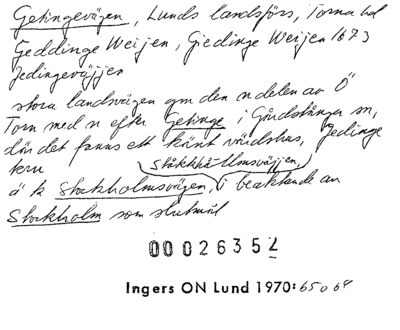 Getingevägen, Lunds landsförs, Torna hd
Geddinge Weijen, Giedinge Weijen 1673
jedingeväjjen
stora landsvägen gm den n delen av Ö
Torn med n efter Getinge i Gårdstånga sn,
där det fanns ett känt värdshus, jedinge
kru
Ståkkhållmsväjjen,
ä k Stockholmsvägen, i beaktande av
Stockholm som slutmål
00026352
Ingers ON Lund 1970: 65 o 69